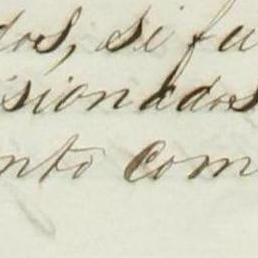 dos, si fu
sionados
nto com